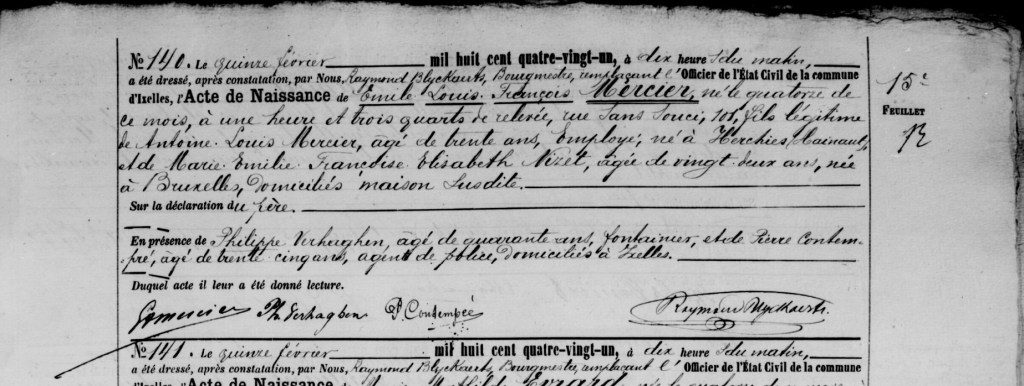 No 140. Le quinze février mil huit cent quatre-vingt-un, à dix heure s du matin,
a été dressé, après constatation, par Nous, Raymond Blyckaerts, Bourgmestre, remplaçant l' Officier de l'État Civil de la commune
d'Ixelles, l'Acte de Naissance de Emile Louis François Mercier, né le quatorze de
ce mois, à une heure et trois quarts de relevée, rue Sans Souci, 101, fils légitime
de Antoine Louis Mercier, âgé de trente ans, Employé, né à Herchies (Hainaut,
et de Marie Emilie Françoise Elisabeth Nizet, âgée de vingt-deux ans, née
à Bruxelles, domiciliés maison susdite.
Sur la déclaration du père.
En présence de Philippe Verhaghen, agé de quarante ans, fontainier, et de Pierre Contem-
pré, âgé de trente cinq ans, agent de police, domiciliés à Ixelles.
Duquel acte il leur a été donné lecture.
Ph Verhaghen P. Contempré Raymond Blyckaerts.
No 141. Le quinze février mil huit cent quatre-vingt-un, à dix heure s du matin,
a été dressé, après constatation, par Nous, Raymond Blyckaerts Bourgmestre, remplaçant l' Officier de l'État Civil de la commune
d'Ixelles, l'Acte de Naissance de Evrard
15e
FEUILLET